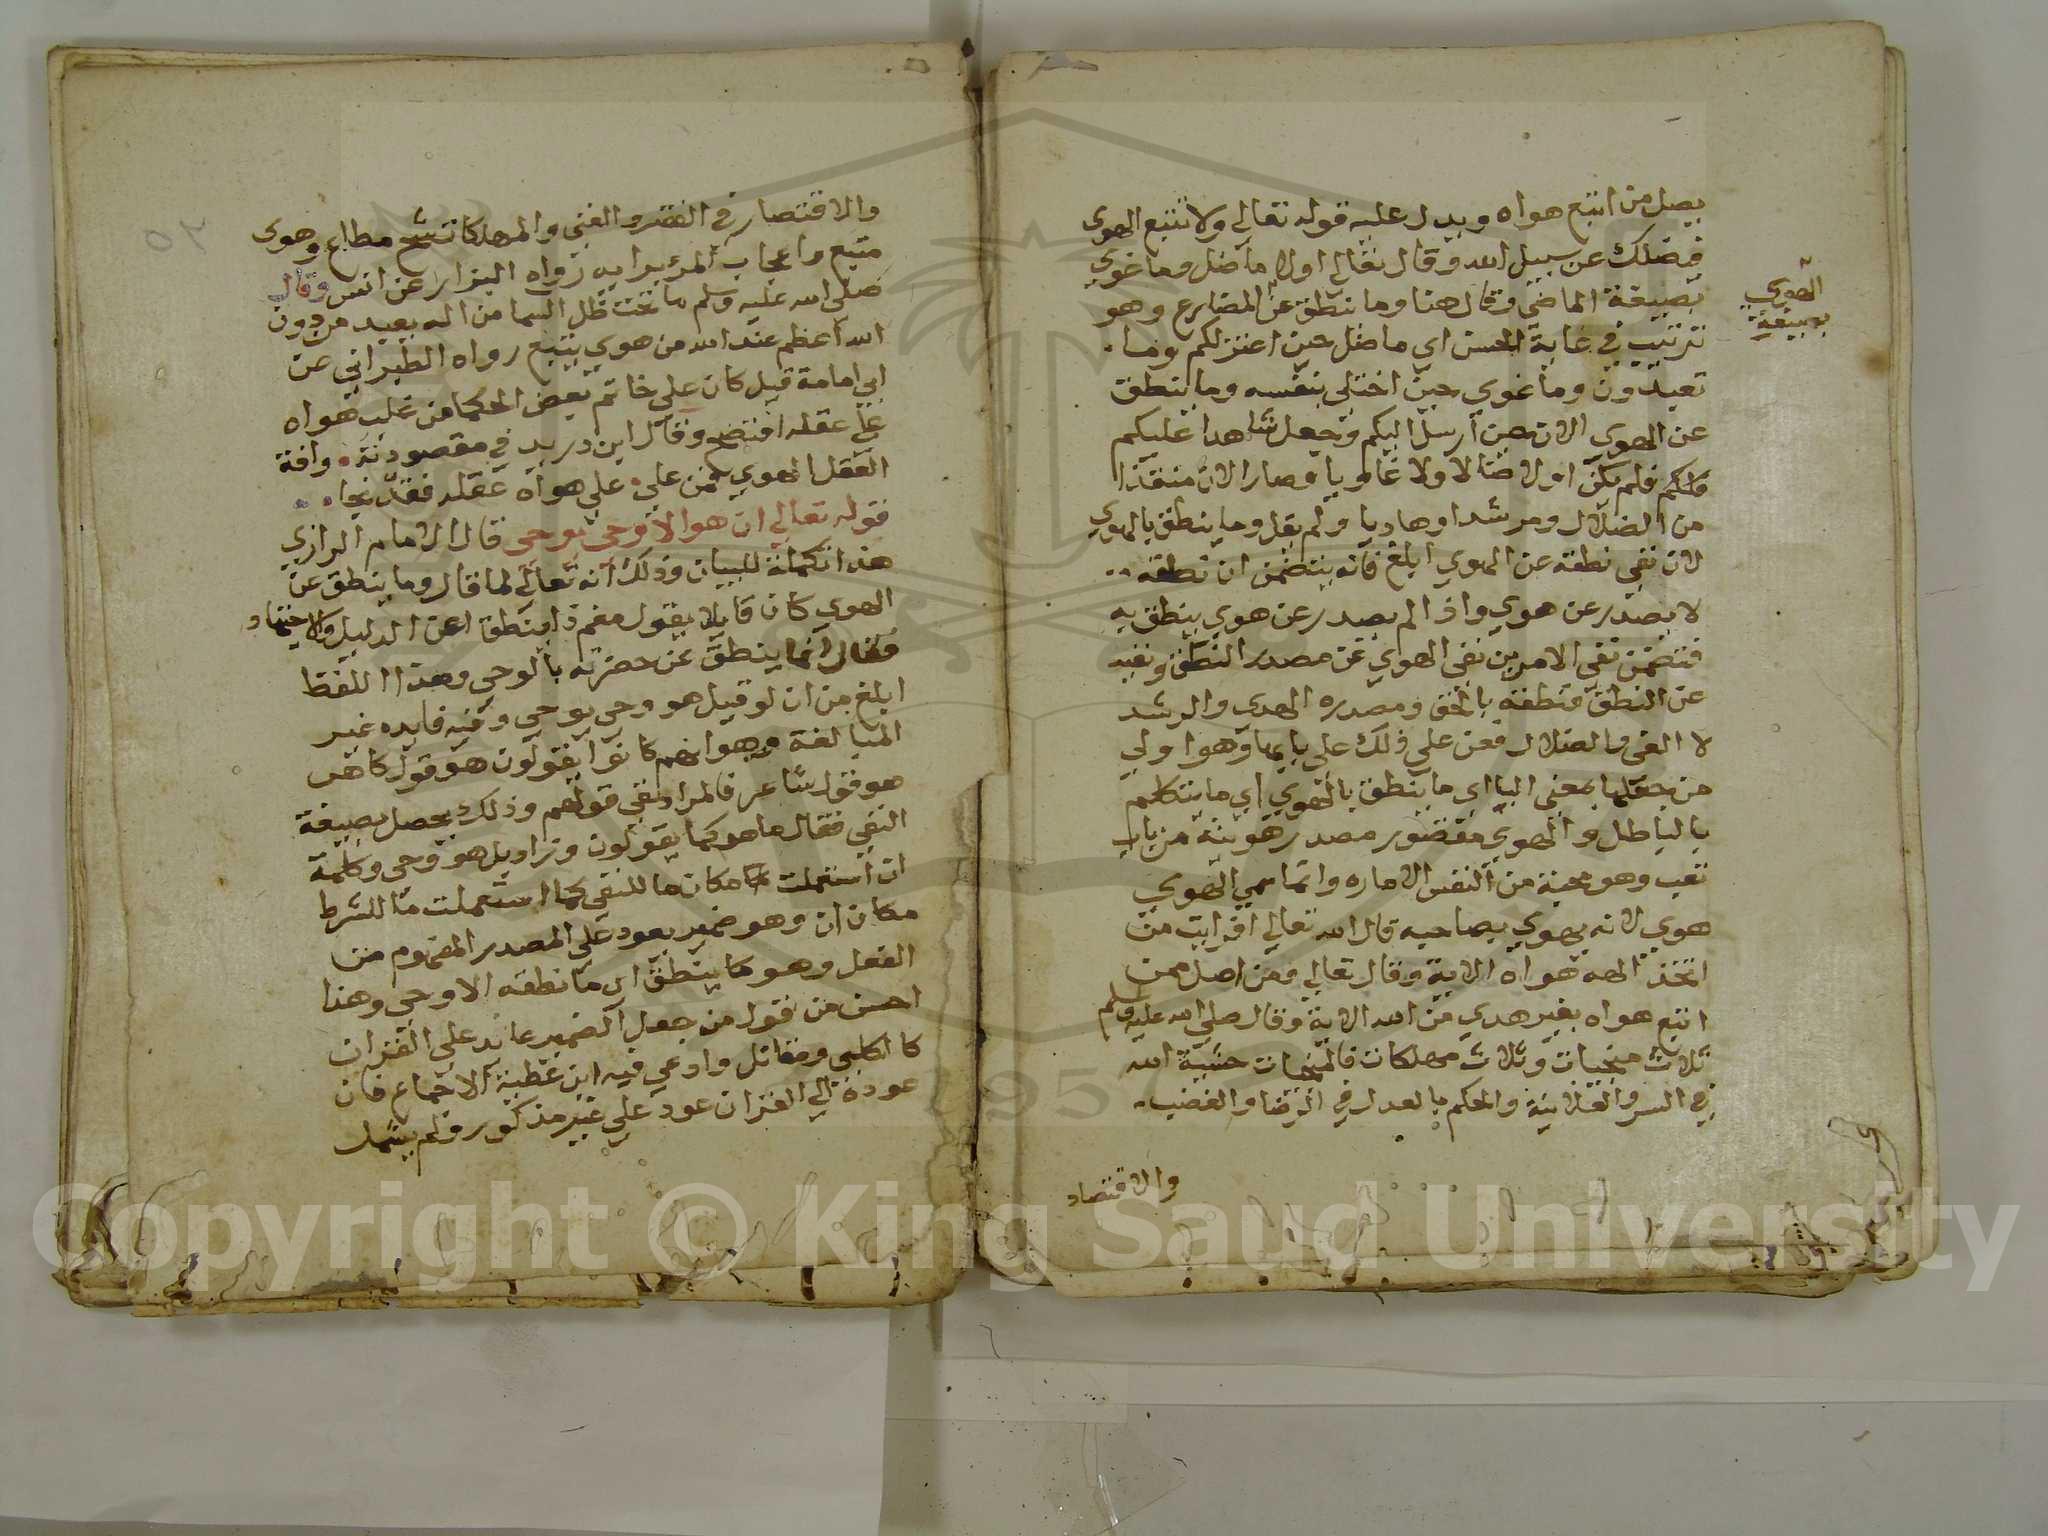 يصل من اتبع هواه ويدل عليه قوله تعالي ولا تتبع الهوي
فيضلك عن سبيل الله وقال تعالي اولا ما ضل وما غوي
بصيغة الماضي وقال هنا وما ينطق عن المضارع وهو
الهوي
بصيغة
ترتيب في غاية الحسن اي ما ضل حين اعتزلكم وما
تعبدون وما غوي حين اختلي بنفسه وما ينطق
عن الهوي الان حين ارسل اليكم وجعل شاهدا عليكم
فلم يكن اولا ضالا ولا غاويا وصار الان منقذا
من الضلال ومرشدا وهاديا ولم يقل وما ينطق بالهوي
لان نفي نطقه عن الهوي ابلغ فانه يتضمن ان نطقه
لا يصدر عن هوي واذا لم يصدر عن هوي ينطق به
فتضمن نفي الامرين نفي الهوي عن مصدر النطق ونفيه
عن النطق فنطقه بالحق ومصدره الهدي والرشد
لا الغي والضلال فعن علي ذلك علي بابها وهو اولي
من جعلها بمعني البا اي ما ينطق بالهوي اي ما يتكلم
بالباطل والهوي مقصور مصدر هويته من باب
تعب وهو محبة من النفس الاماره وانما سمي الهوي
هوي لانه يهوي بصاحبه قال الله تعالي افرايت من
اتخذ الهه هواه الاية وقال تعالي ومن اضل ممن
اتبع هواه بغير هدي من الله الاية وقال صلي الله عليه وسلم
ثلاث منجيات وثلاث مهلكات فالمنجيات خشية الله
في السر والعلانية والحكم بالعدل في الرضا والغضب
والاقتصاد
٥٢
والاقتصار في الفقر والغني والمهلكات شح مطاع وهوي
متبع واعجاب المرء برايه رواه البزار عن انس وقال
صلي الله عليه وسلم ما تحت ظل السما من اله يعبد من دون
الله اعظم عند الله من هوي يتبع رواه الطبراني عن
ابي امامة قيل كان علي خاتم بعض الحكما من غلب هواه
علي عقله افتضح وقال ابن دريد في مقصودته وافة
العقل الهوي فمن علي علي هواه عقله فقد نجا
قوله تعالي ان هو الا وحي يوحي قال الامام الرازي
هذا تكملة للبيان وذلك انه تعالي لما قال وما ينطق عن
الهوي كان قايلا يقول فعم ذا ينطق اعن الدليل والاجتهاد
فقال انما ينطق عن حضرته بالوحي وهذا اللفظ
ابلغ من ان لو قيل هو وحي يوحي وفيه فايده غير
المبالغة وهو انهم كانوا يقولون هو قول كاهن
هو قول شاعر فالمراد نفي قولهم وذلك يحصل بصيغة
النفي فقال ما هو كما يقولون وزاد بل هو وحي وكلمة
ان استعملت مكان ما للنفي كما استعملت ما للشرط
مكان ان وهو ضمير يعود علي المصدر المفهوم من
الفعل وهو ما ينطق اي ما نطقه الا وحي وهذا
احسن من قول من جعل الضمير عائد علي القران
كالكلبي ومقاتل وادعي فيه ابن عطية الاجماع فان
عوده الي القران عود علي غير مذكور ولم يشمل
Copyright © King Saud University
1957